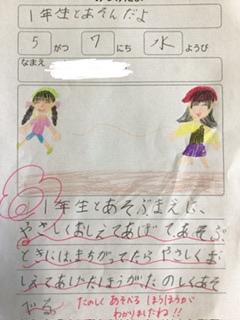 1年生とあそんだよ
5 がつ 7 にち 水 ようび
なまえ
1年生とあそぶまえに、
やさしくおしえてあげて、あそぶ
ときにはまちがってたら やさしくお
しえてあげたほうが、たのしくあそ
べる。
たのしく あそべる ほうほうが
わかりましたね!!